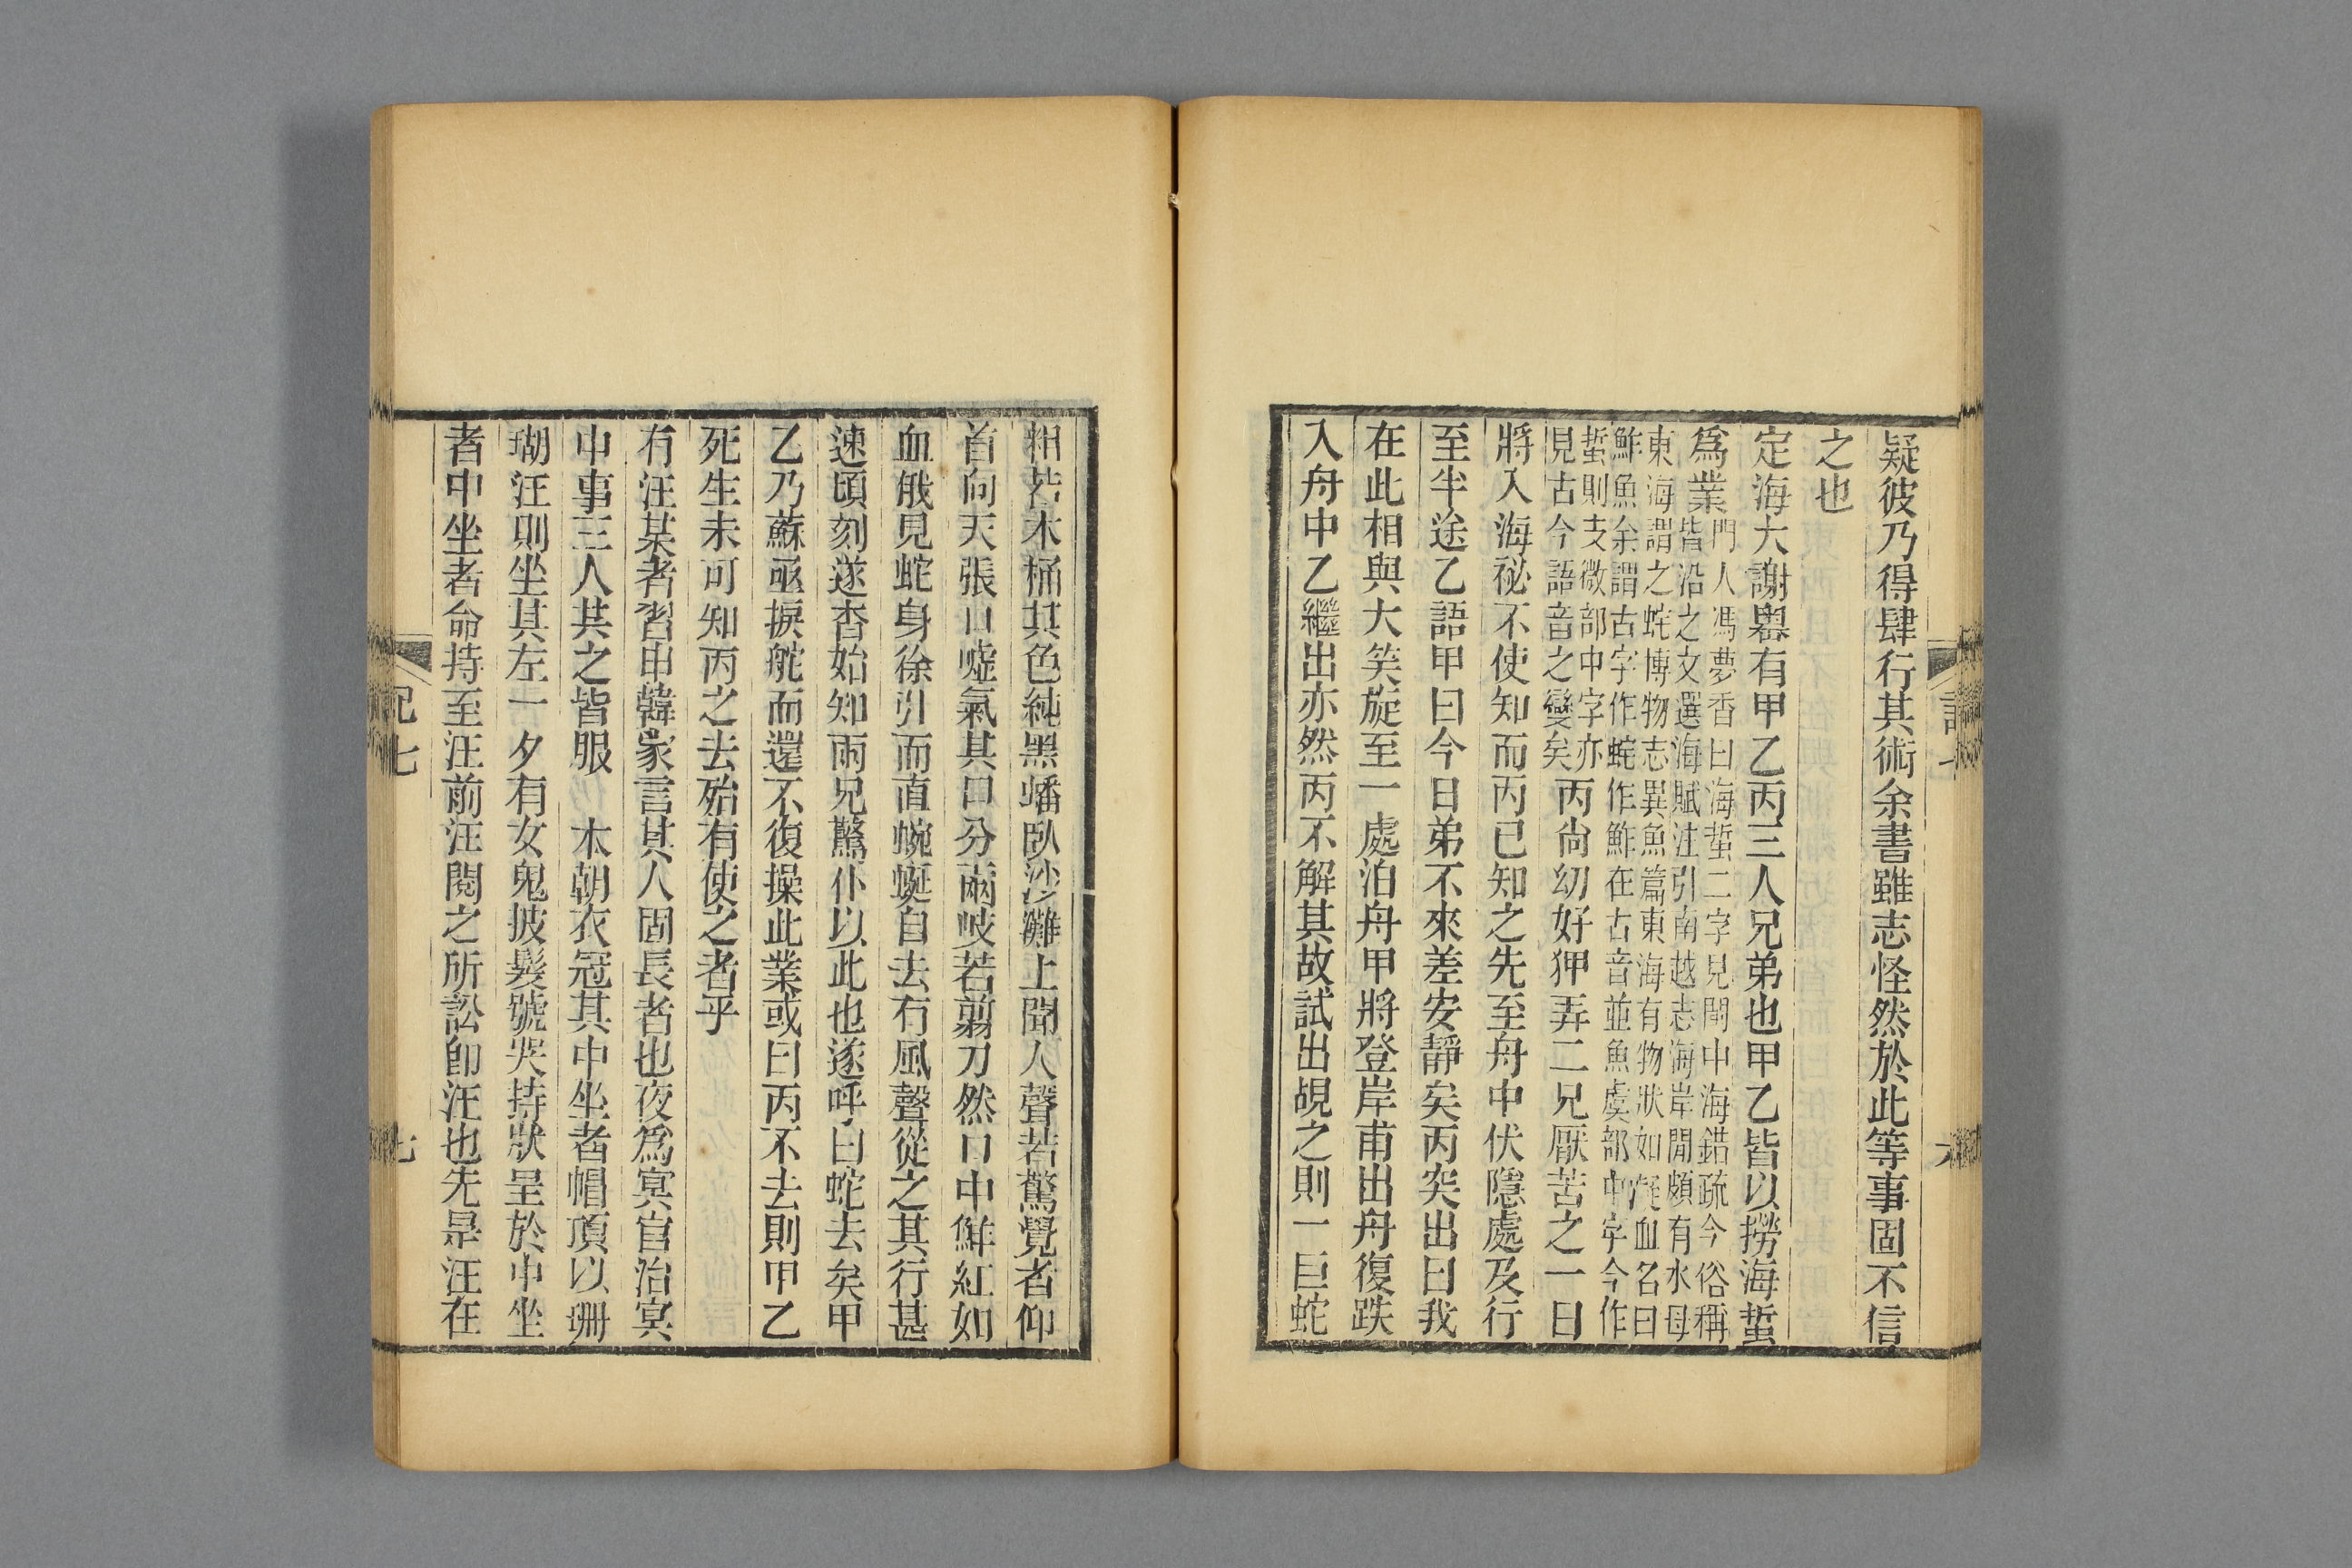 疑彼乃得肆行其術余書雖志怪然於此等事固不信
之也
定海大謝嶴有甲乙丙三人兄弟也甲乙皆以撈海蜇
爲業
門人馮夢香曰海蜇二字見閩中海錯疏今俗稱
皆沿之文選海賦注引南越志海岸閒頗有水母
東海謂之䖳博物志異魚篇東海有物狀如凝血名曰
鮓魚余謂古字作䖳作鮓在古音並魚虞部中字今作
蜇則支微部中字亦
見古今語音之變矣
丙尚幼好狎弄二兄厭苦之一日
將入海祕不使知而丙已知之先至舟中伏隱處及行
至半途乙語甲曰今日弟不來差安靜矣丙突出曰我
在此相與大笑旋至一處泊舟甲將登岸甫出舟復跌
入舟中乙繼出亦然丙不解其故試出覘之則一巨蛇
粗若木桶其色純黑蟠臥沙灘上聞人聲若驚覺者仰
首向天張口噓氣其口分兩岐若翦刀然口中鮮紅如
血俄見蛇身徐引而直蜿蜒自去有風聲從之其行甚
速頃刻遂杳始知兩兄驚仆以此也遂呼曰蛇去矣甲
乙乃蘇亟捩舵而還不復操此業或曰丙不去則甲乙
死生未可知丙之去殆有使之者乎
有汪某者習申韓家言其人固長者也夜爲冥官治冥
中事三人共之皆服　本朝衣冠其中坐者帽頂以珊
瑚汪則坐其左一夕有女鬼披髮號哭持狀呈於中坐
者中坐者命持至汪前汪閱之所訟卽汪也先是汪在
記七
七